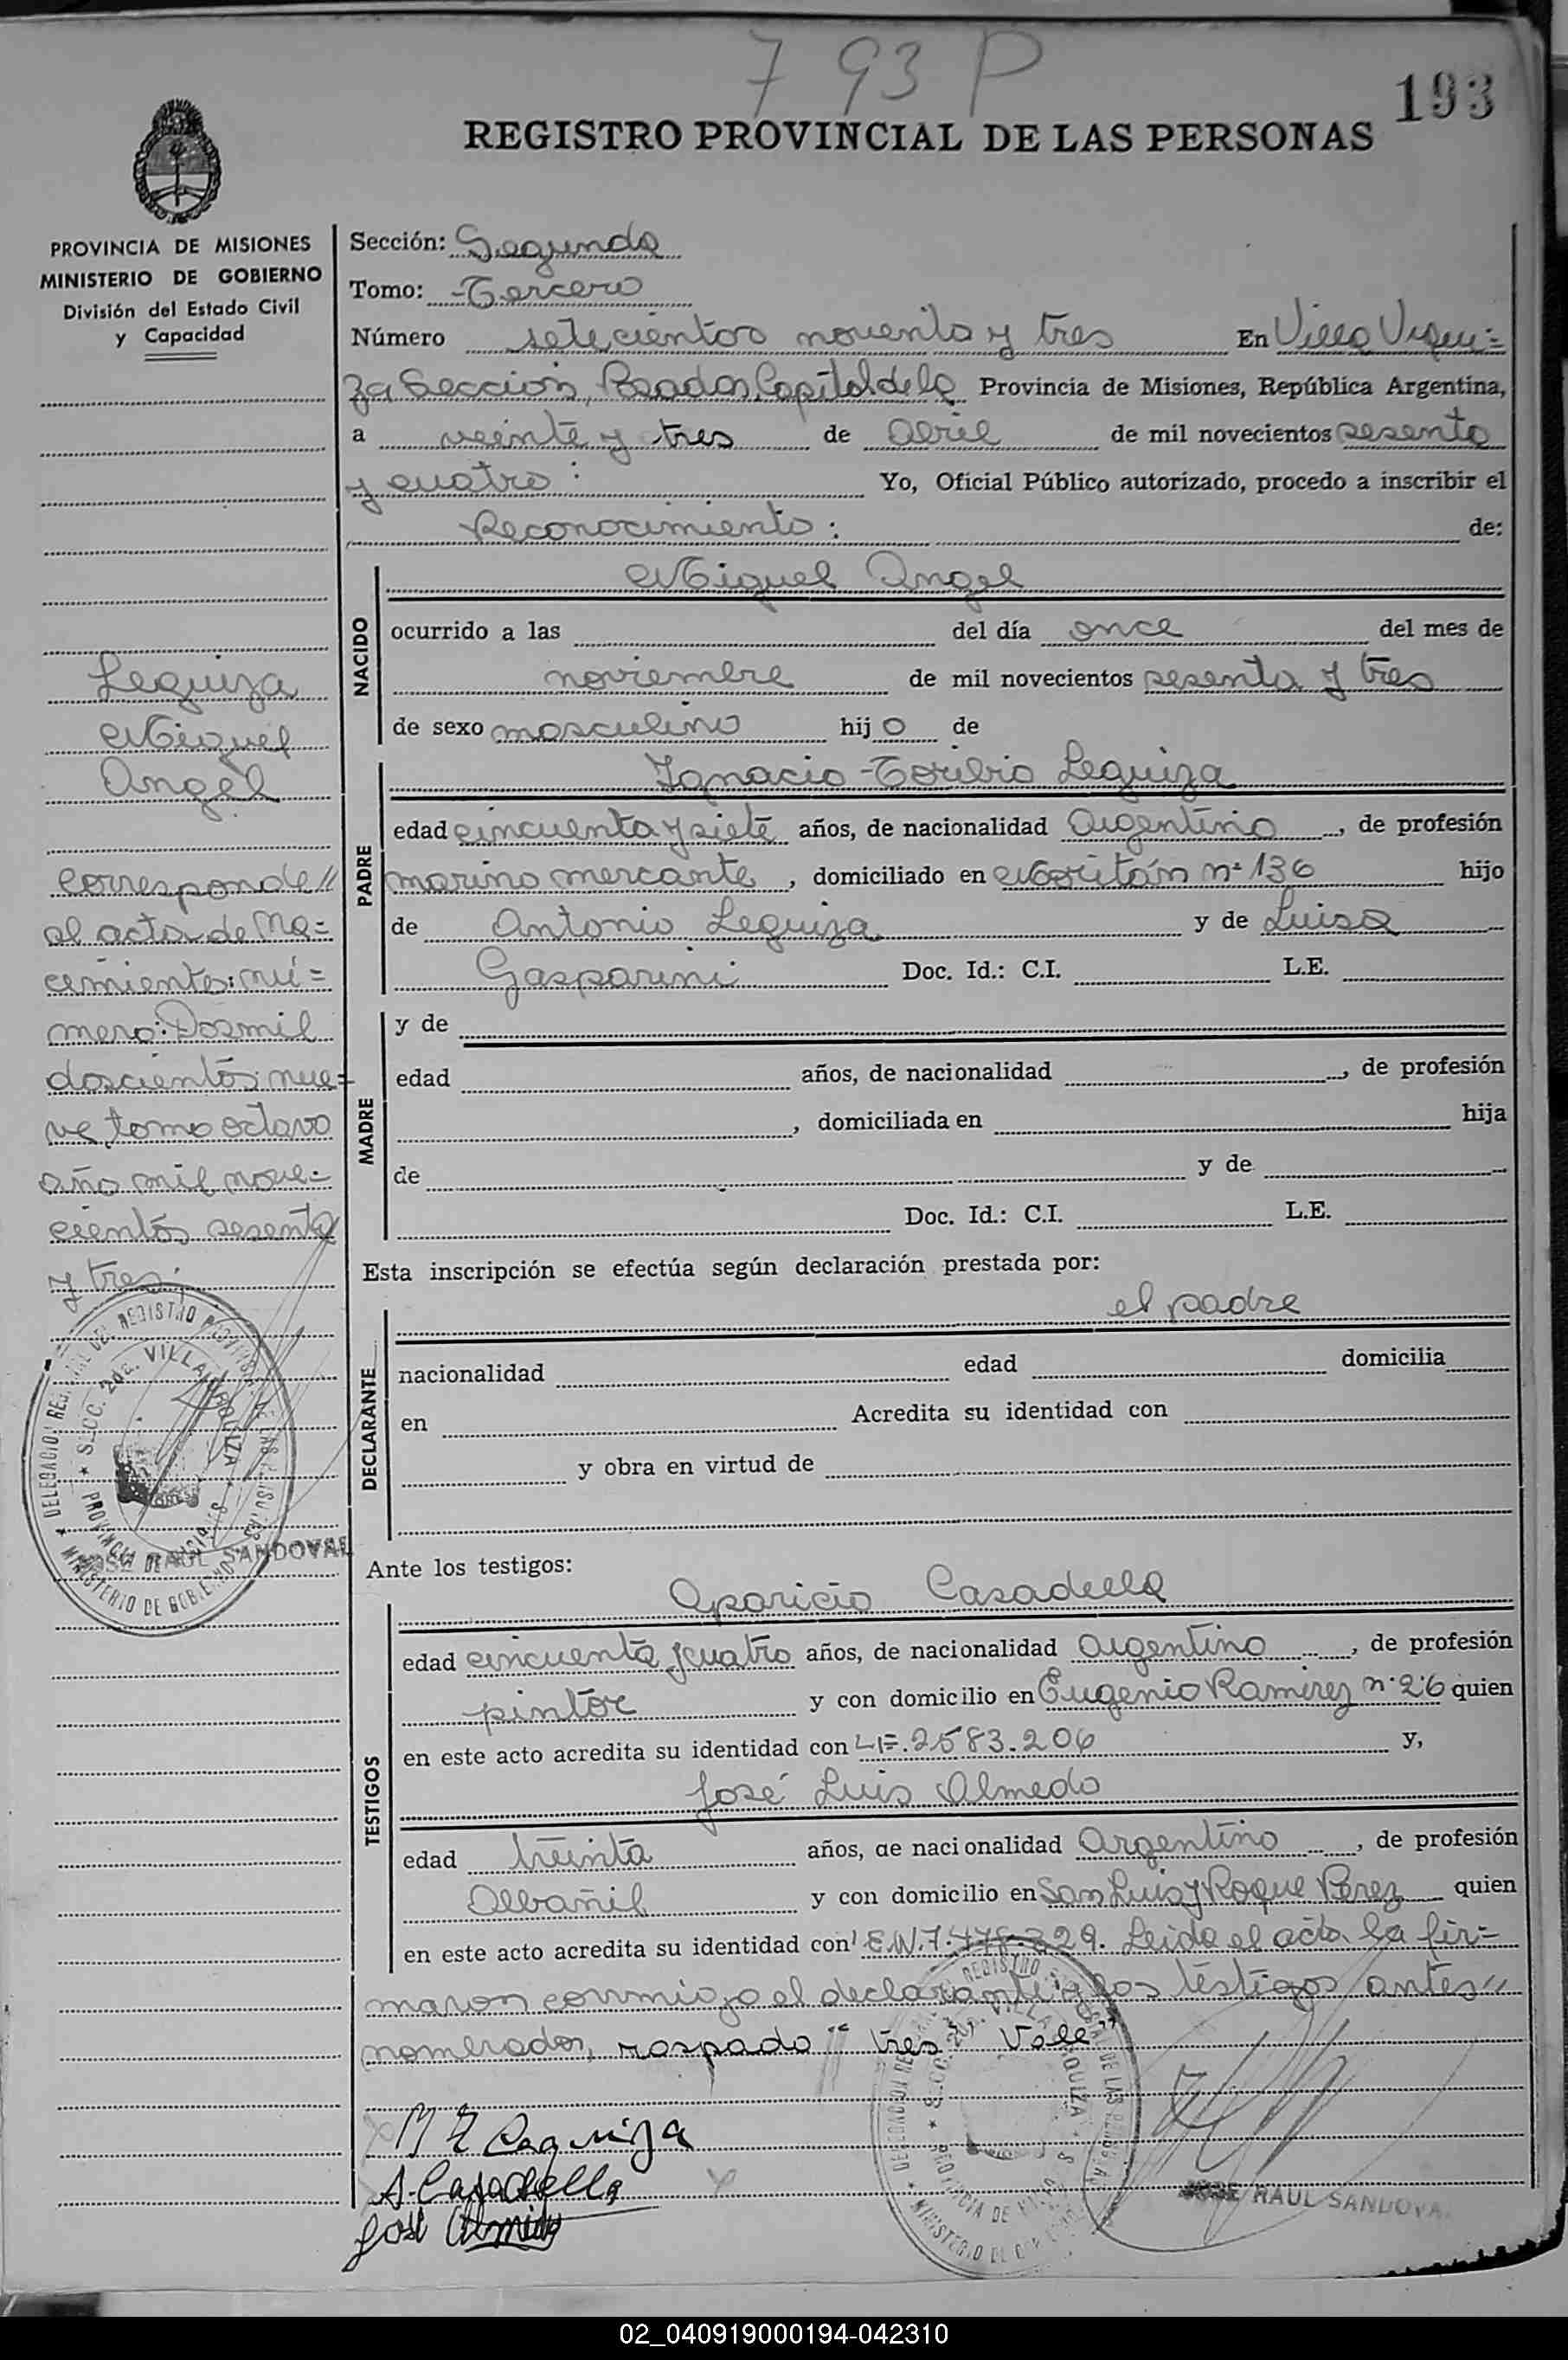 7 93 P
193
REGISTRO PROVINCIAL DE LAS PERSONAS
PROVINCIA DE MISIONES
MINISTERIO DE GOBIERNO
División del Estado Civil
y Capacidad
Leguiza
Miguel
Angel
corresponde//
al acta de Na=
cimiento: nú=
mero: Dosmil
doscientos nue=
ve tomo octavo
año mil nove=
cientos sesenta
y tres.
JOSE RAUL SANDOVAL
Sección: Segunda
Tomo: Tercero
Número setecientos noventa y tres En Villa Urqui=
za Sección, Posadas, Capital de la Provincia de Misiones, República Argentina,
a veinte y tres de abril de mil novecientos sesenta
y cuatro: Yo, Oficial Público autorizado, procedo a inscribir el
Reconocimiento: de:
NACIDO
Miguel Angel
ocurrido a las del día once del mes de
noviembre de mil novecientos sesenta y tres
de sexo masculino hijo de
PADRE
Ignacio Toribio Leguiza
edad cincuenta y siete años, de nacionalidad Argentino, de profesión
marino mercante, domiciliado en n° 136 hijo
de Antonio Leguiza y de Luisa
Gasparini Doc. Id.: C.I. L.E.
MADRE
y de
edad años, de nacionalidad , de profesión
, domiciliada en hija
de y de
Doc. Id.: C.I. L.E.
Esta inscripción se efectúa según declaración prestada por:
DECLARANTE
el padre
nacionalidad edad domicilia
en Acredita su identidad con
y obra en virtud de
Ante los testigos:
TESTIGOS
Aparicio Casadella
edad cincuenta y cuatro años, de nacionalidad Argentino, de profesión
pintor y con domicilio en Eugenio Ramirez n° 26 quien
en este acto acredita su identidad con 2583.206 y,
José Luis Almedo
edad treinta años, de nacionalidad Argentino, de profesión
Albañil y con domicilio en San Luis y Roque Perez quien
en este acto acredita su identidad con Leida el acta la fir=
maron conmigo el declarante y los testigos antes//
nombrados, raspado "tres" Vale"
Leguiza
A. Casadella
José
JOSE RAUL SANDOVA
02_040919000194-042310